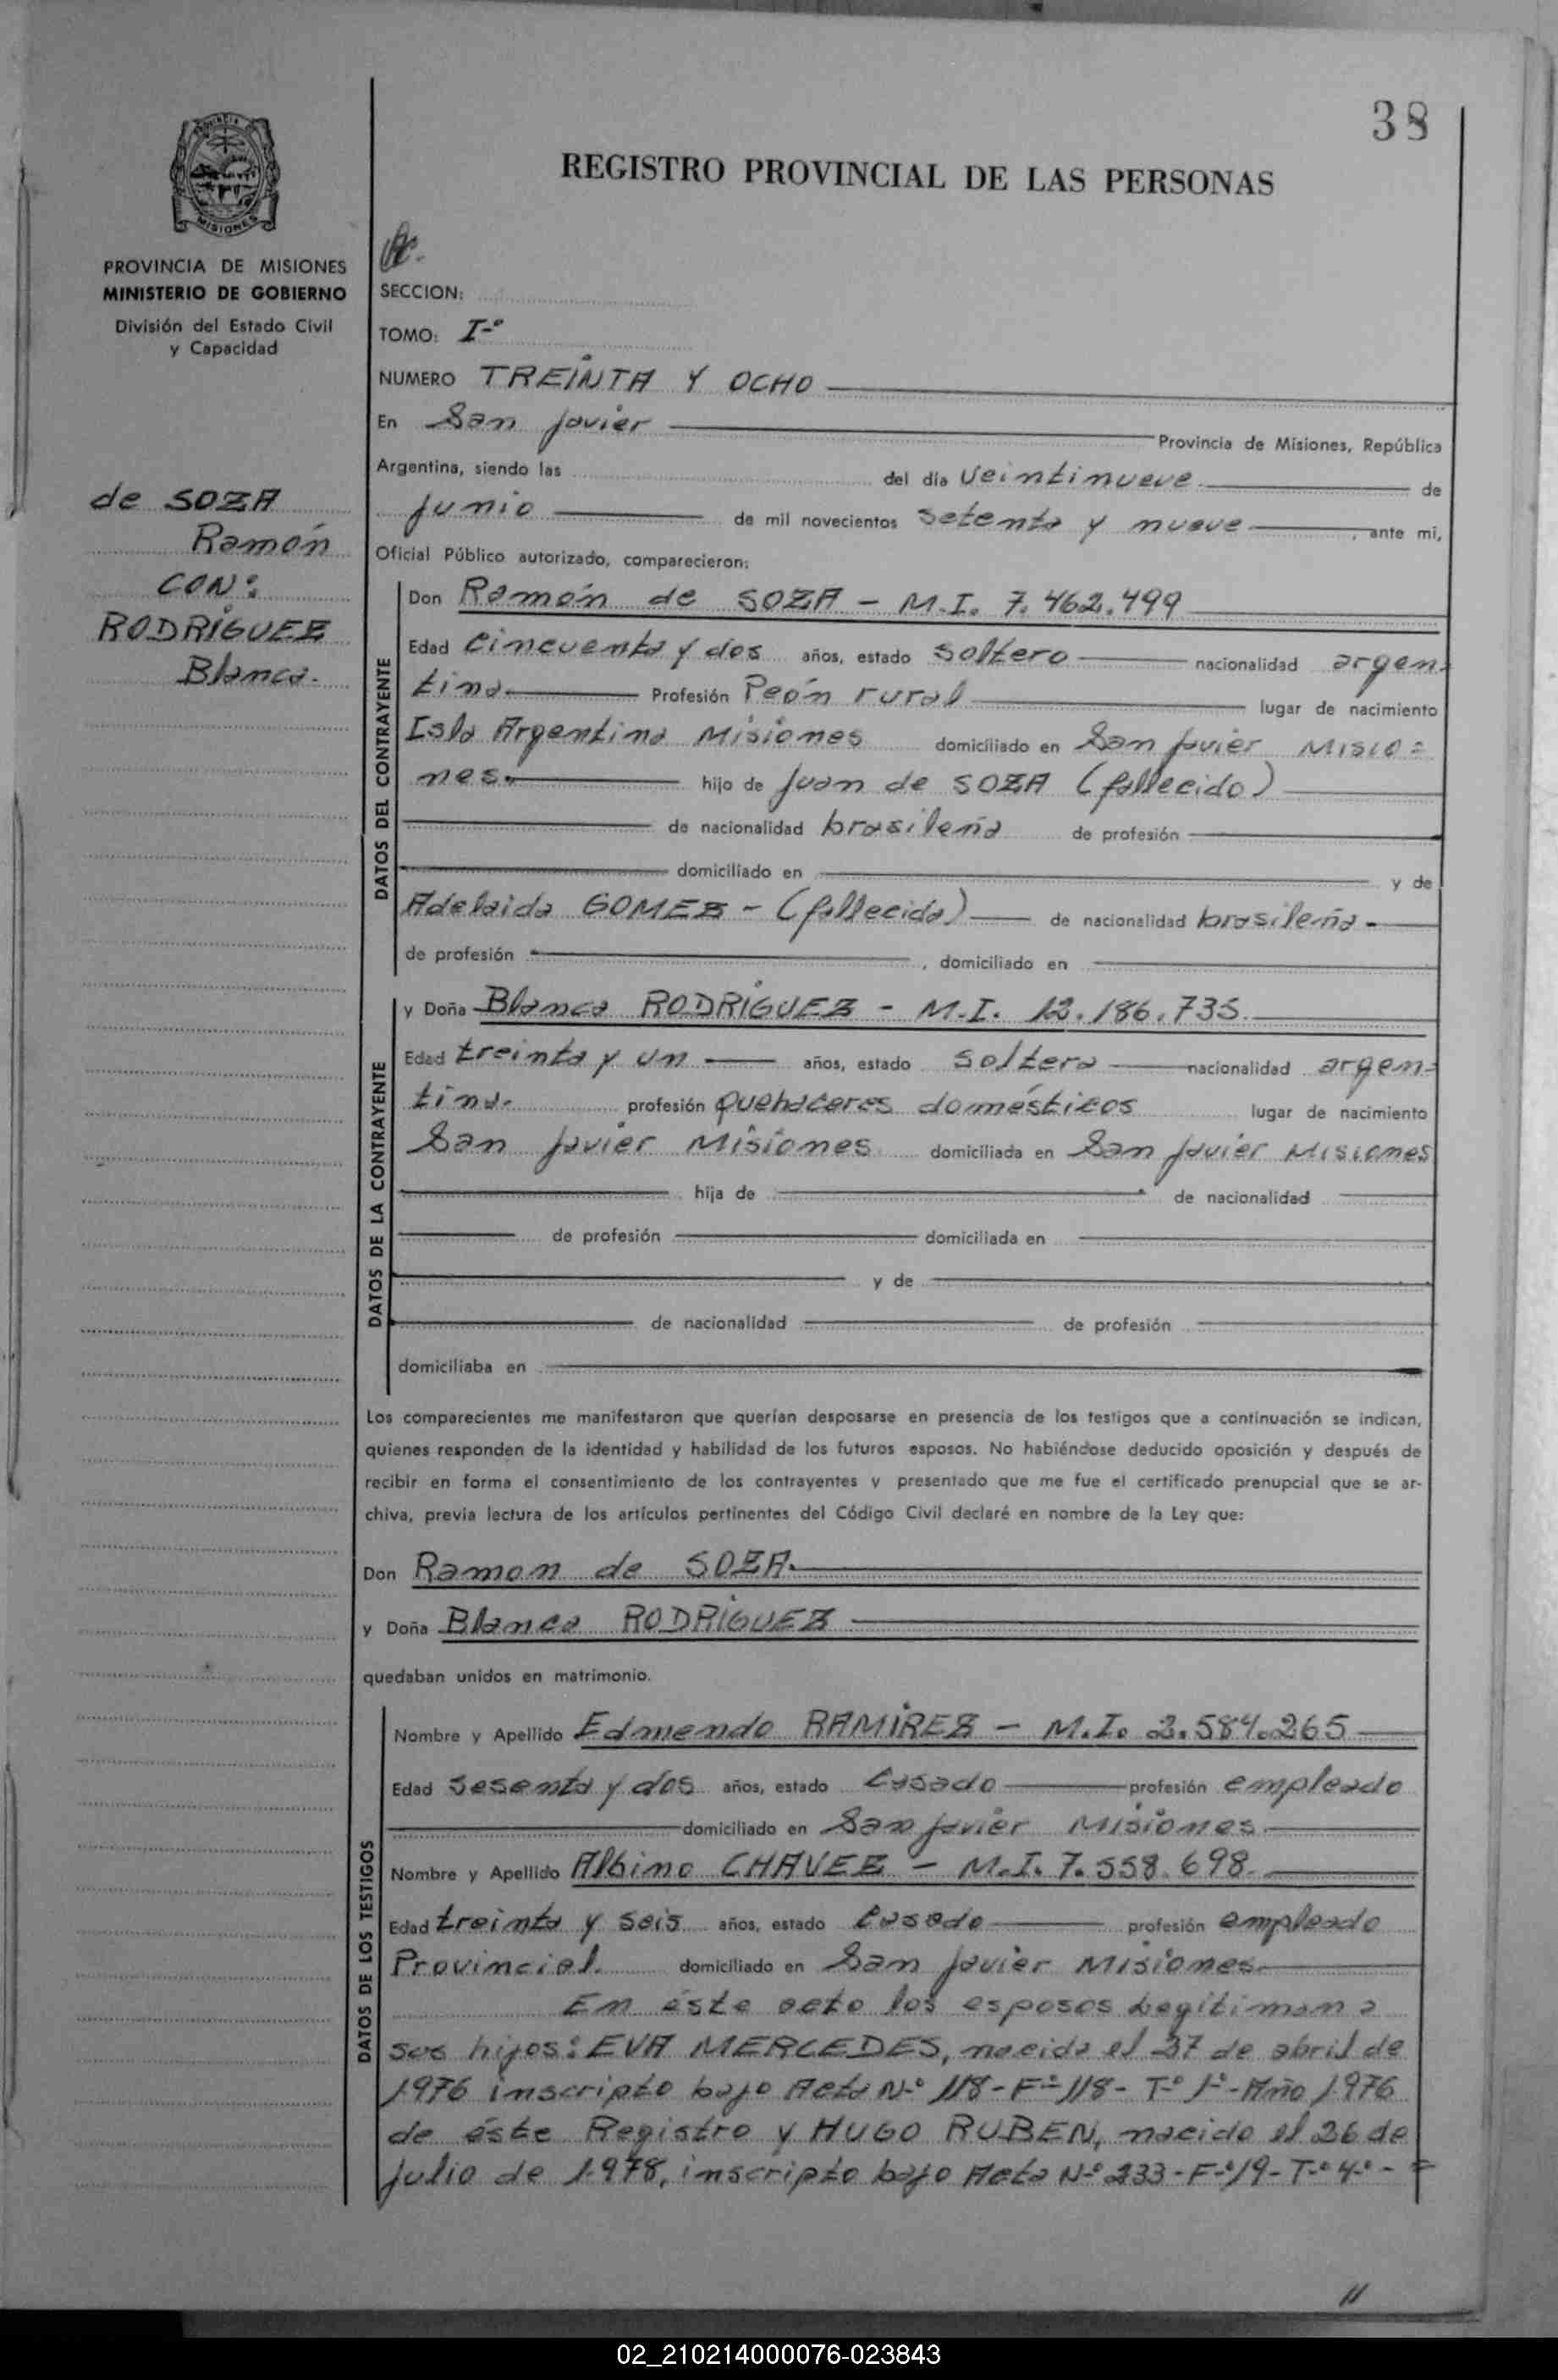 38
REGISTRO PROVINCIAL DE LAS PERSONAS
PROVINCIA DE MISIONES
MINISTERIO DE GOBIERNO
División del Estado Civil
y Capacidad
de SOZA
Ramón
CON:
RODRÍGUEZ
Blanca.
SECCION:
TOMO: I-º
NUMERO TREINTA Y OCHO
En San Javier Provincia de Misiones, República
Argentina, siendo las del día Veintinueve de
Junio de mil novecientos Setenta y nueve, ante mi,
Oficial Público autorizado, comparecieron:
DATOS DEL CONTRAYENTE
Don Ramón de SOZA - M.I. 7.462.499
Edad Cincuenta y dos años, estado Soltero nacionalidad argen-
tina. Profesión Peón rural lugar de nacimiento
Isla Argentina Misiones domiciliado en San Javier Misio=
nes. hijo de Juan de SOZA (fallecido)
de nacionalidad brasileña de profesión
domiciliado en y de
Adelaida GOMEZ - (fallecida) de nacionalidad brasileña-
de profesión , domiciliado en
DATOS DE LA CONTRAYENTE
y Doña Blanca RODRÍGUEZ - M.I. 12.186.735.
Edad treinta y un años, estado Soltera nacionalidad argen=
tina. profesión Quehaceres domésticos lugar de nacimiento
San Javier Misiones domiciliada en San Javier Misiones
hija de de nacionalidad
de profesión domiciliada en
y de
de nacionalidad de profesión
domiciliaba en
Los comparecientes me manifestaron que querían desposarse en presencia de los testigos que a continuación se indican,
quienes responden de la identidad y habilidad de los futuros esposos. No habiéndose deducido oposición y después de
recibir en forma el consentimiento de los contrayentes y presentado que me fue el certificado prenupcial que se ar-
chiva, previa lectura de los artículos pertinentes del Código Civil declaré en nombre de la Ley que:
Don Ramon de SOZA.
y Doña Blanca RODRÍGUEZ
quedaban unidos en matrimonio.
DATOS DE LOS TESTIGOS
Nombre y Apellido Edmendo RAMÍREZ - M.I. 2.584.265
Edad Sesenta y dos años, estado Casado profesión empleado
domiciliado en San Javier Misiones
Nombre y Apellido Albino CHAVEZ - M.I. 7.558.698.
Edad treinta y seis años, estado Casado profesión empleado
Provincial. domiciliado en San Javier Misiones.
En éste acto los esposos Legitiman a
sus hijos: EVA MERCEDES, nacida el 27 de abril de
1976 inscripto bajo Acta N-º 118-F-º 118- T-º 1-º-Año 1976
de éste Registro y HUGO RUBEN, nacido el 26 de
Julio de 1.978, inscripto bajo Acta N-º 233-F-º 19-T-º 4-º-
//
02_210214000076-023843